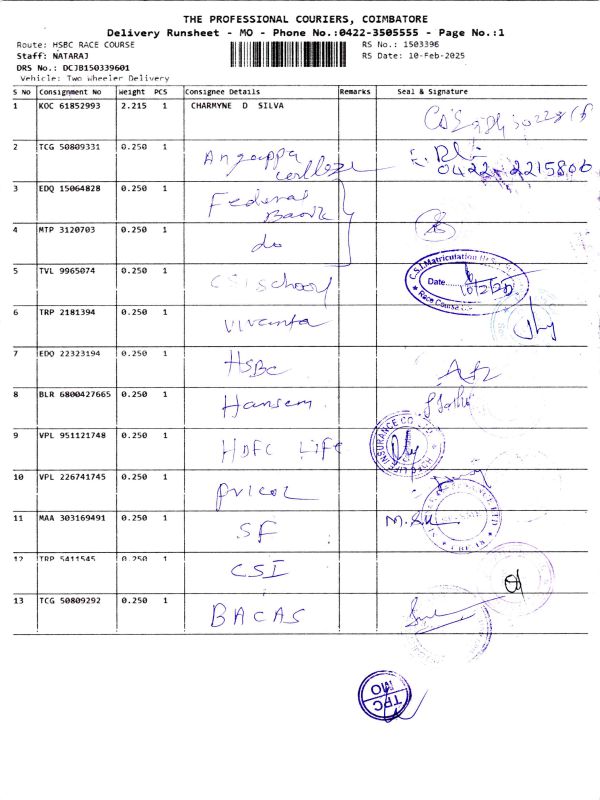 THE PROFESSIONAL COURIERS, COIMBATORE
Delivery Runsheet - MO - Phone No.:0422-3505555 - Page No.:1
Route: HSBC RACE COURSE RS No.: 1503396
Staff: NATARAJ RS Date: 10-Feb-2025
DRS No.: DCJB150339601
Vehicle: Two Wheeler Delivery
S No Consignment No Weight PCS Consignee Details Remarks Seal & Signature
1 KOC 61852993 2.215 1 CHARMYNE D SILVA
2 TCG 50809331 0.250 1 Angappa college 0422-2215800
3 EDQ 15064828 0.250 1 Federal Bank
4 MTP 3120703 0.250 1 do
5 TVL 9965074 0.250 1 CSI School C.S.I Matriculation Date Race Course
6 TRP 2181394 0.250 1 Vivanta
7 EDQ 22323194 0.250 1 HSBC
8 BLR 6800427665 0.250 1 Hansem
9 VPL 951121748 0.250 1 HDFC LIFE INSURANCE CO
10 VPL 226741745 0.250 1 pricol
11 MAA 303169491 0.250 1 SF
12 TRP 5411545 0.250 1 CSI
13 TCG 50809292 0.250 1 BACAS
TPC
MO